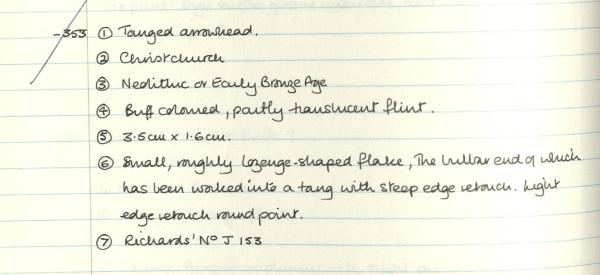 -353 ① Tanged arrowhead.
② Christchurch
③ Neolithic or Early Bronze Age
④ Buff coloured, partly translucent flint.
⑤ 3.5cm x 1.6cm.
⑥ Small, roughly lozenge-shaped flake, The bulbar end of which
has been worked into a tang with steep edge retouch. Light
edge retouch round point.
⑦ Richards' Nº J 153